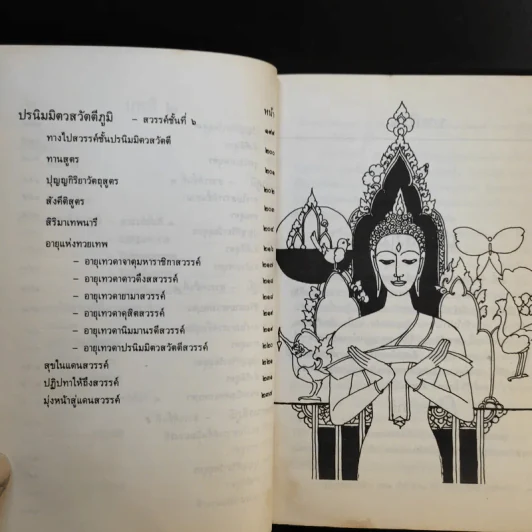 หน้า
ปรนิมมิตวสวัตตีภูมิ – สวรรค์ชั้นที่ ๖
ทางไปสวรรค์ชั้นปรนิมมิตวสวัตตี
ทานสูตร
ปุญญกิริยาวัตถุสูตร
สังคีติสูตร
สิริมาเทพนารี
อายุแห่งทวยเทพ
– อายุเทวดาจาตุมหาราชิกาสวรรค์
– อายุเทวดาดาวดึงสสวรรค์
– อายุเทวดายามาสวรรค์
– อายุเทวดาดุสิตสวรรค์
– อายุเทวดานิมมานรดีสวรรค์
– อายุเทวดาปรนิมมิตวสวัตตีสวรรค์ ๒๒๐
สุขในแดนสวรรค์
ปฏิปทาให้ถึงสวรรค์
มุ่งหน้าสู่แดนสวรรค์